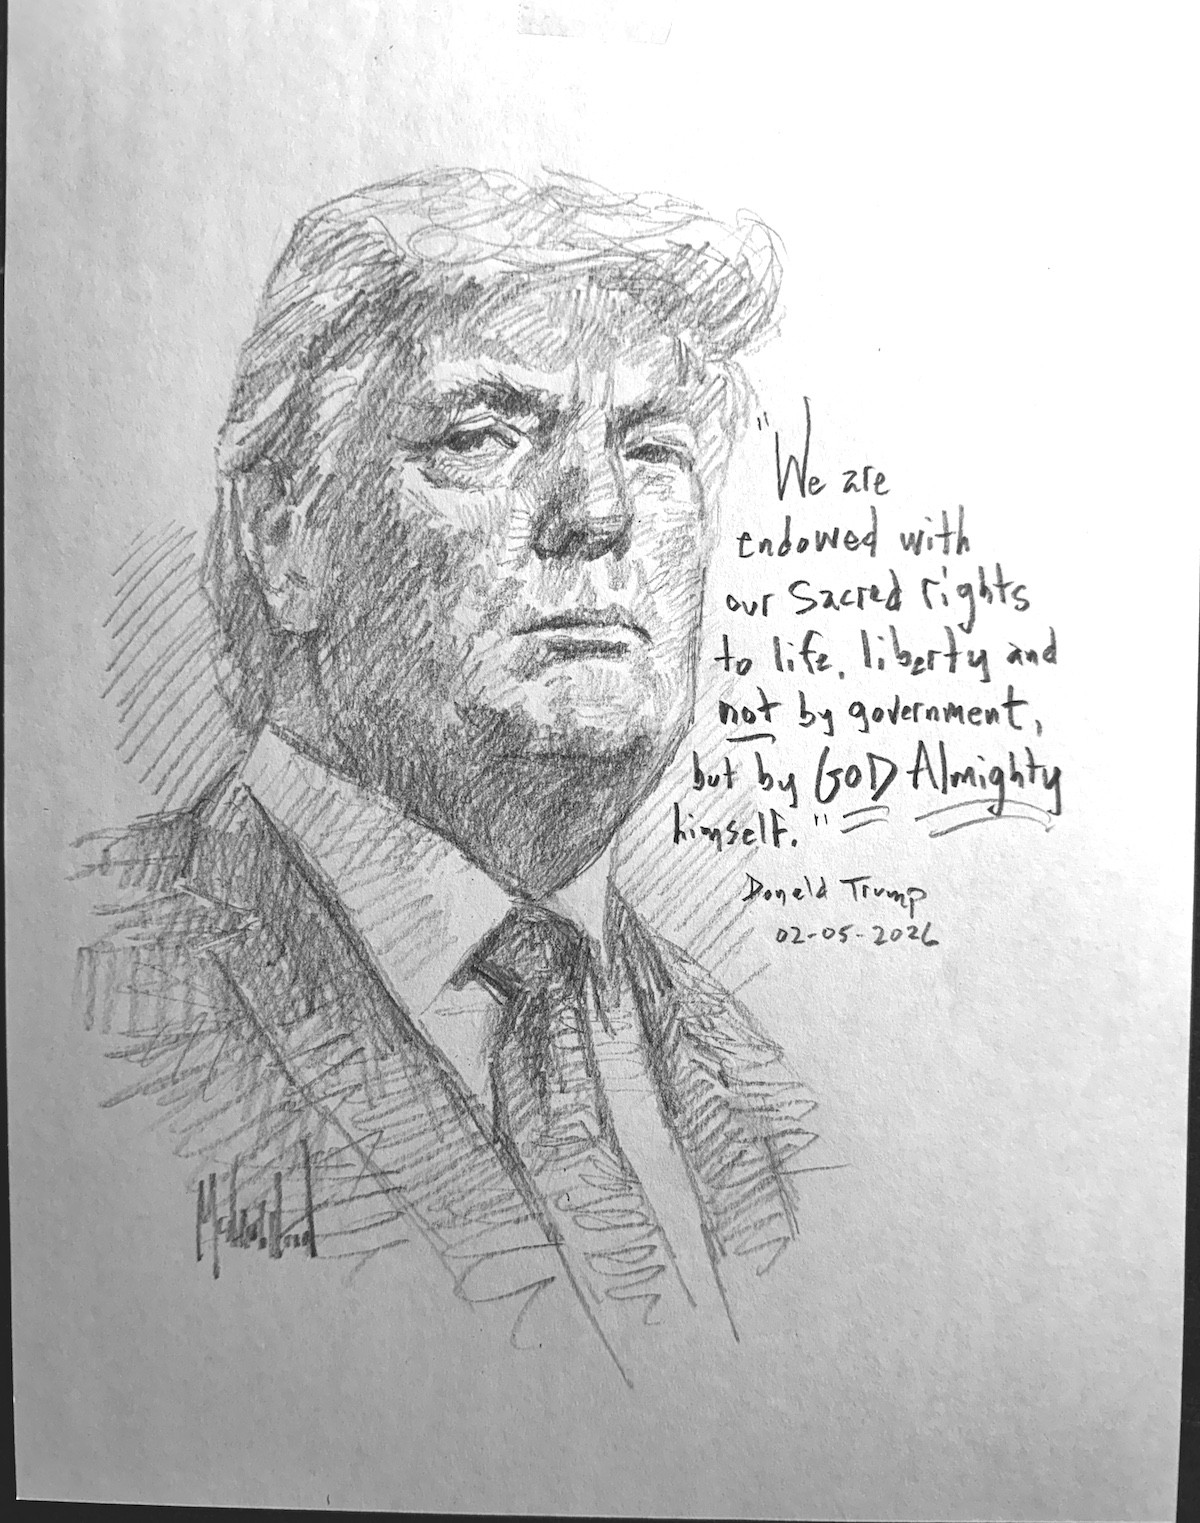 "We are
endowed with
our sacred rights
to life, liberty and
not by government,
but by GOD Almighty
himself."
Donald Trump
02-05-2026